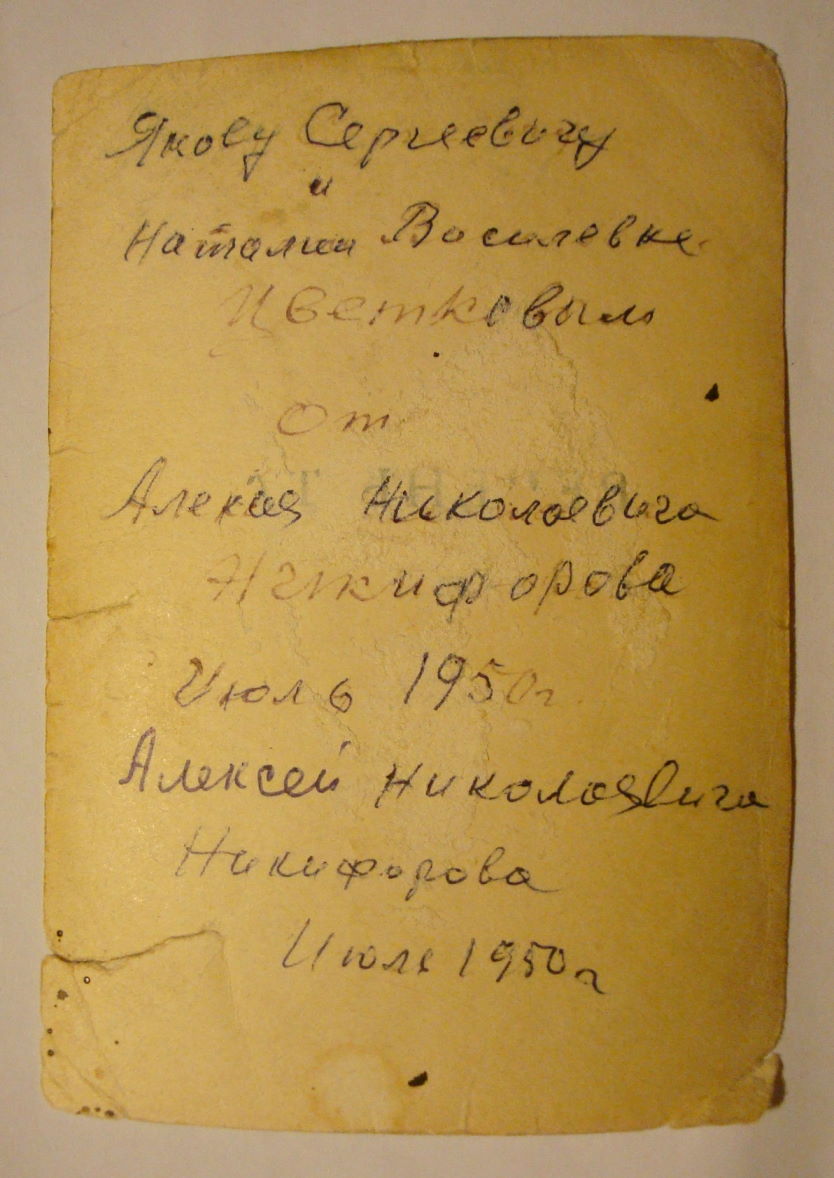 Якову Сергеевичу
и
Наталии Василевне
Цветковым
от
Алексея Николаевича
Никифорова
Июль 1950г
Алексей Николаевича
Никифорова
Июле 1950г